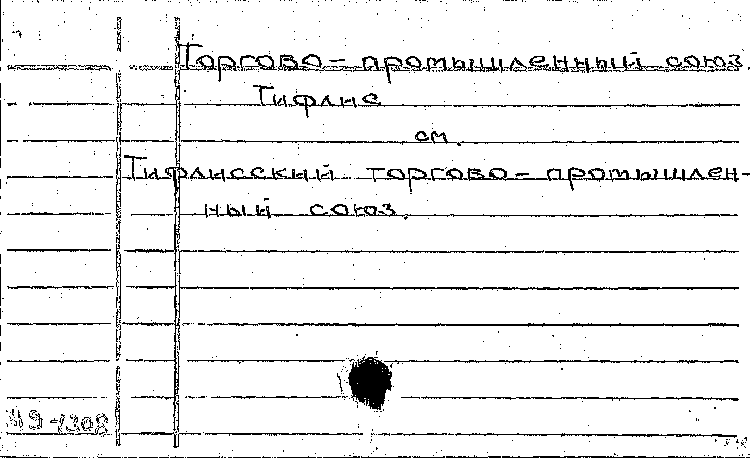 Торгово-промышленный союз.
Тифлис
см.
Тифлисский торгово-промышлен-
ный союз.